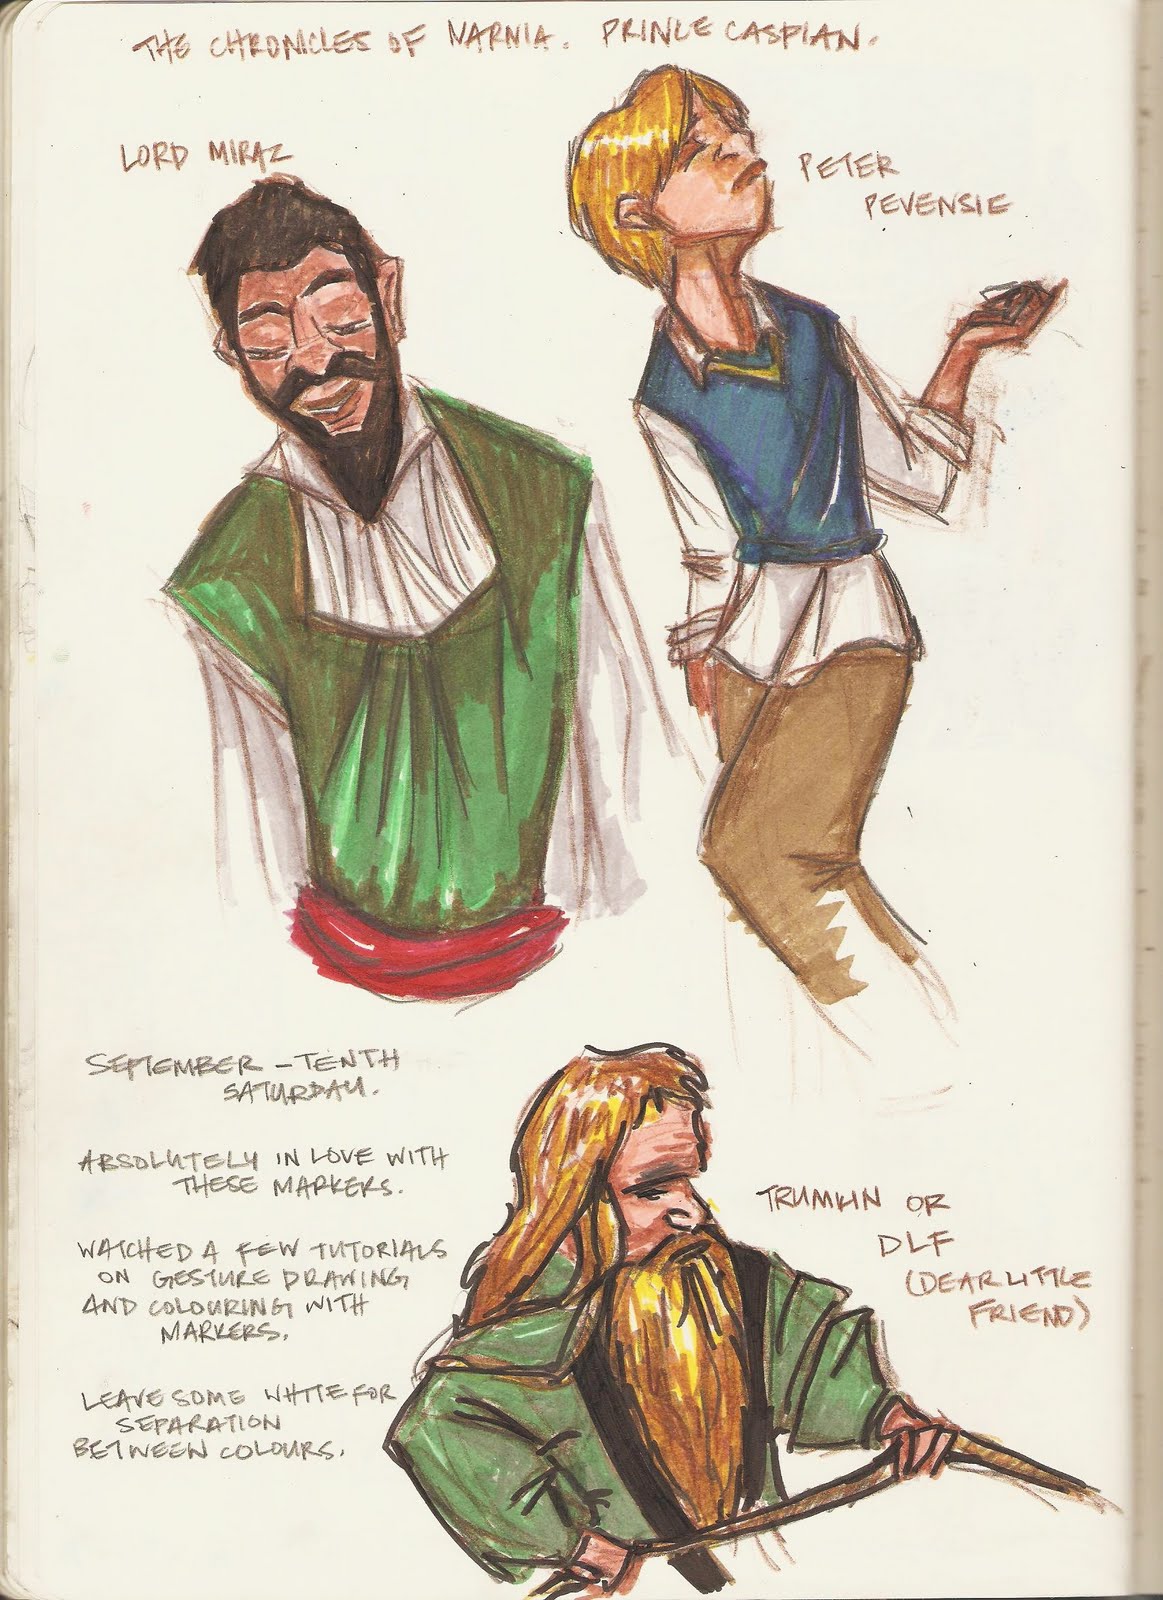 THE CHRONICLES OF NARNIA. PRINCE CASPIAN.
LORD MIRAZ
PETER
PEVENSIE
SEPTEMBER - TENTH
SATURDAY.
ABSOLUTELY IN LOVE WITH
THESE MARKERS.
WATCHED A FEW TUTORIALS
ON GESTURE DRAWING
AND COLOURING WITH
MARKERS.
LEAVE SOME WHITE FOR
SEPARATION
BETWEEN COLOURS.
TRUMKIN OR
DLF
(DEAR LITTLE
FRIEND)